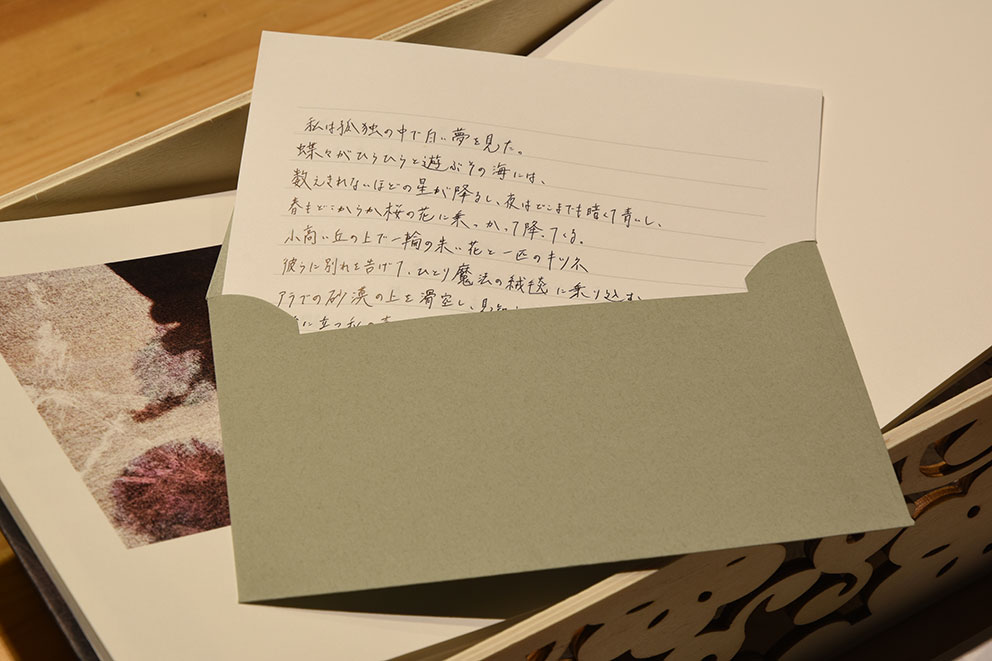 私は孤独の中で白い夢を見た。
蝶々がひらひらと遊ぶその海には、
数えきれないほどの星が降るし、夜はどこまでも暗くて青いし、
春もどこからか桜の花に乗っかって降ってくる。
小高い丘の上で一輪の朱い花と一匹のキツネ
彼らに別れを告げて、ひとり魔法の絨毯に乗り込む
アラブの砂漠の上を滑空し、見知
に立つ私の